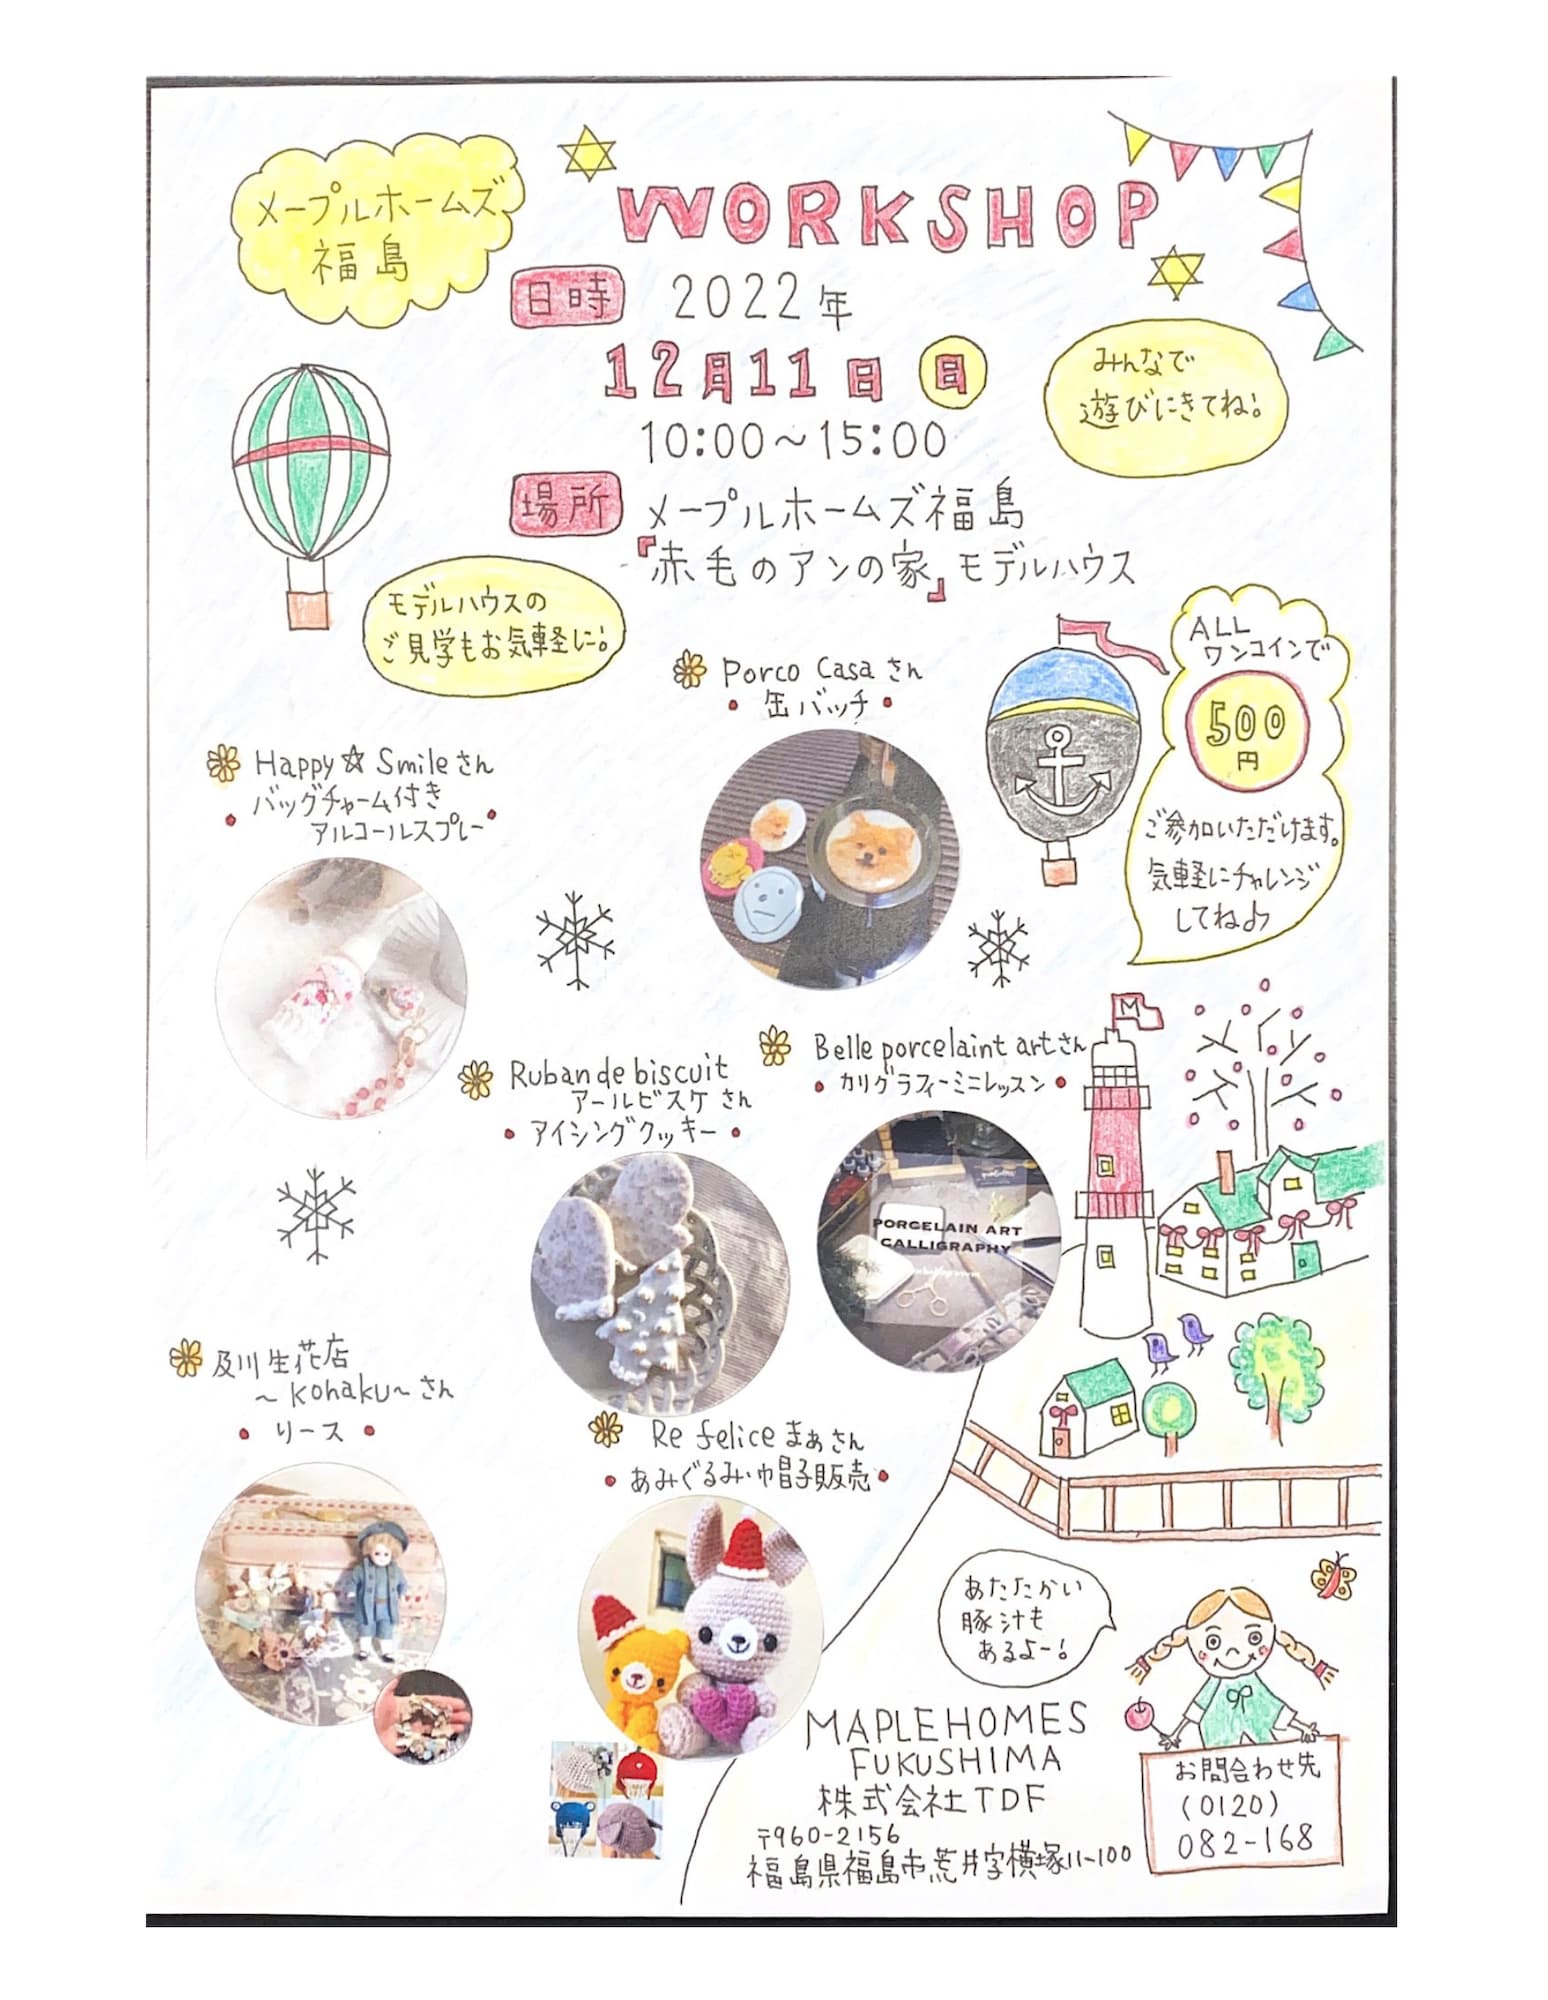 メープルホームズ
福島
WORKSHOP
日時 2022年
12月11日 日
10:00〜15:00
みんなで
遊びにきてね!
場所 メープルホームズ福島
『赤毛のアンの家』モデルハウス
モデルハウスの
ご見学もお気軽に!
ALL
ワンコインで
500
円
ご参加いただけます。
気軽にチャレンジ
してね♪
Porco Casaさん
• 缶バッチ •
Happy☆Smileさん
• バッグチャーム付き
アルコールスプレー •
Ruban de biscuit
アールビスケさん
• アイシングクッキー •
Belle porcelaint artさん
• カリグラフィーミニレッスン •
PORCELAIN ART
CALLIGRAPHY
M
及川生花店
〜Kohaku〜さん
• リース •
Re feliceまぁさん
• あみぐるみ・帽子販売 •
あたたかい
豚汁も
あるよー!
MAPLEHOMES
FUKUSHIMA
株式会社TDF
〒960-2156
福島県福島市荒井字横塚11-100
お問合わせ先
(0120)
082-168